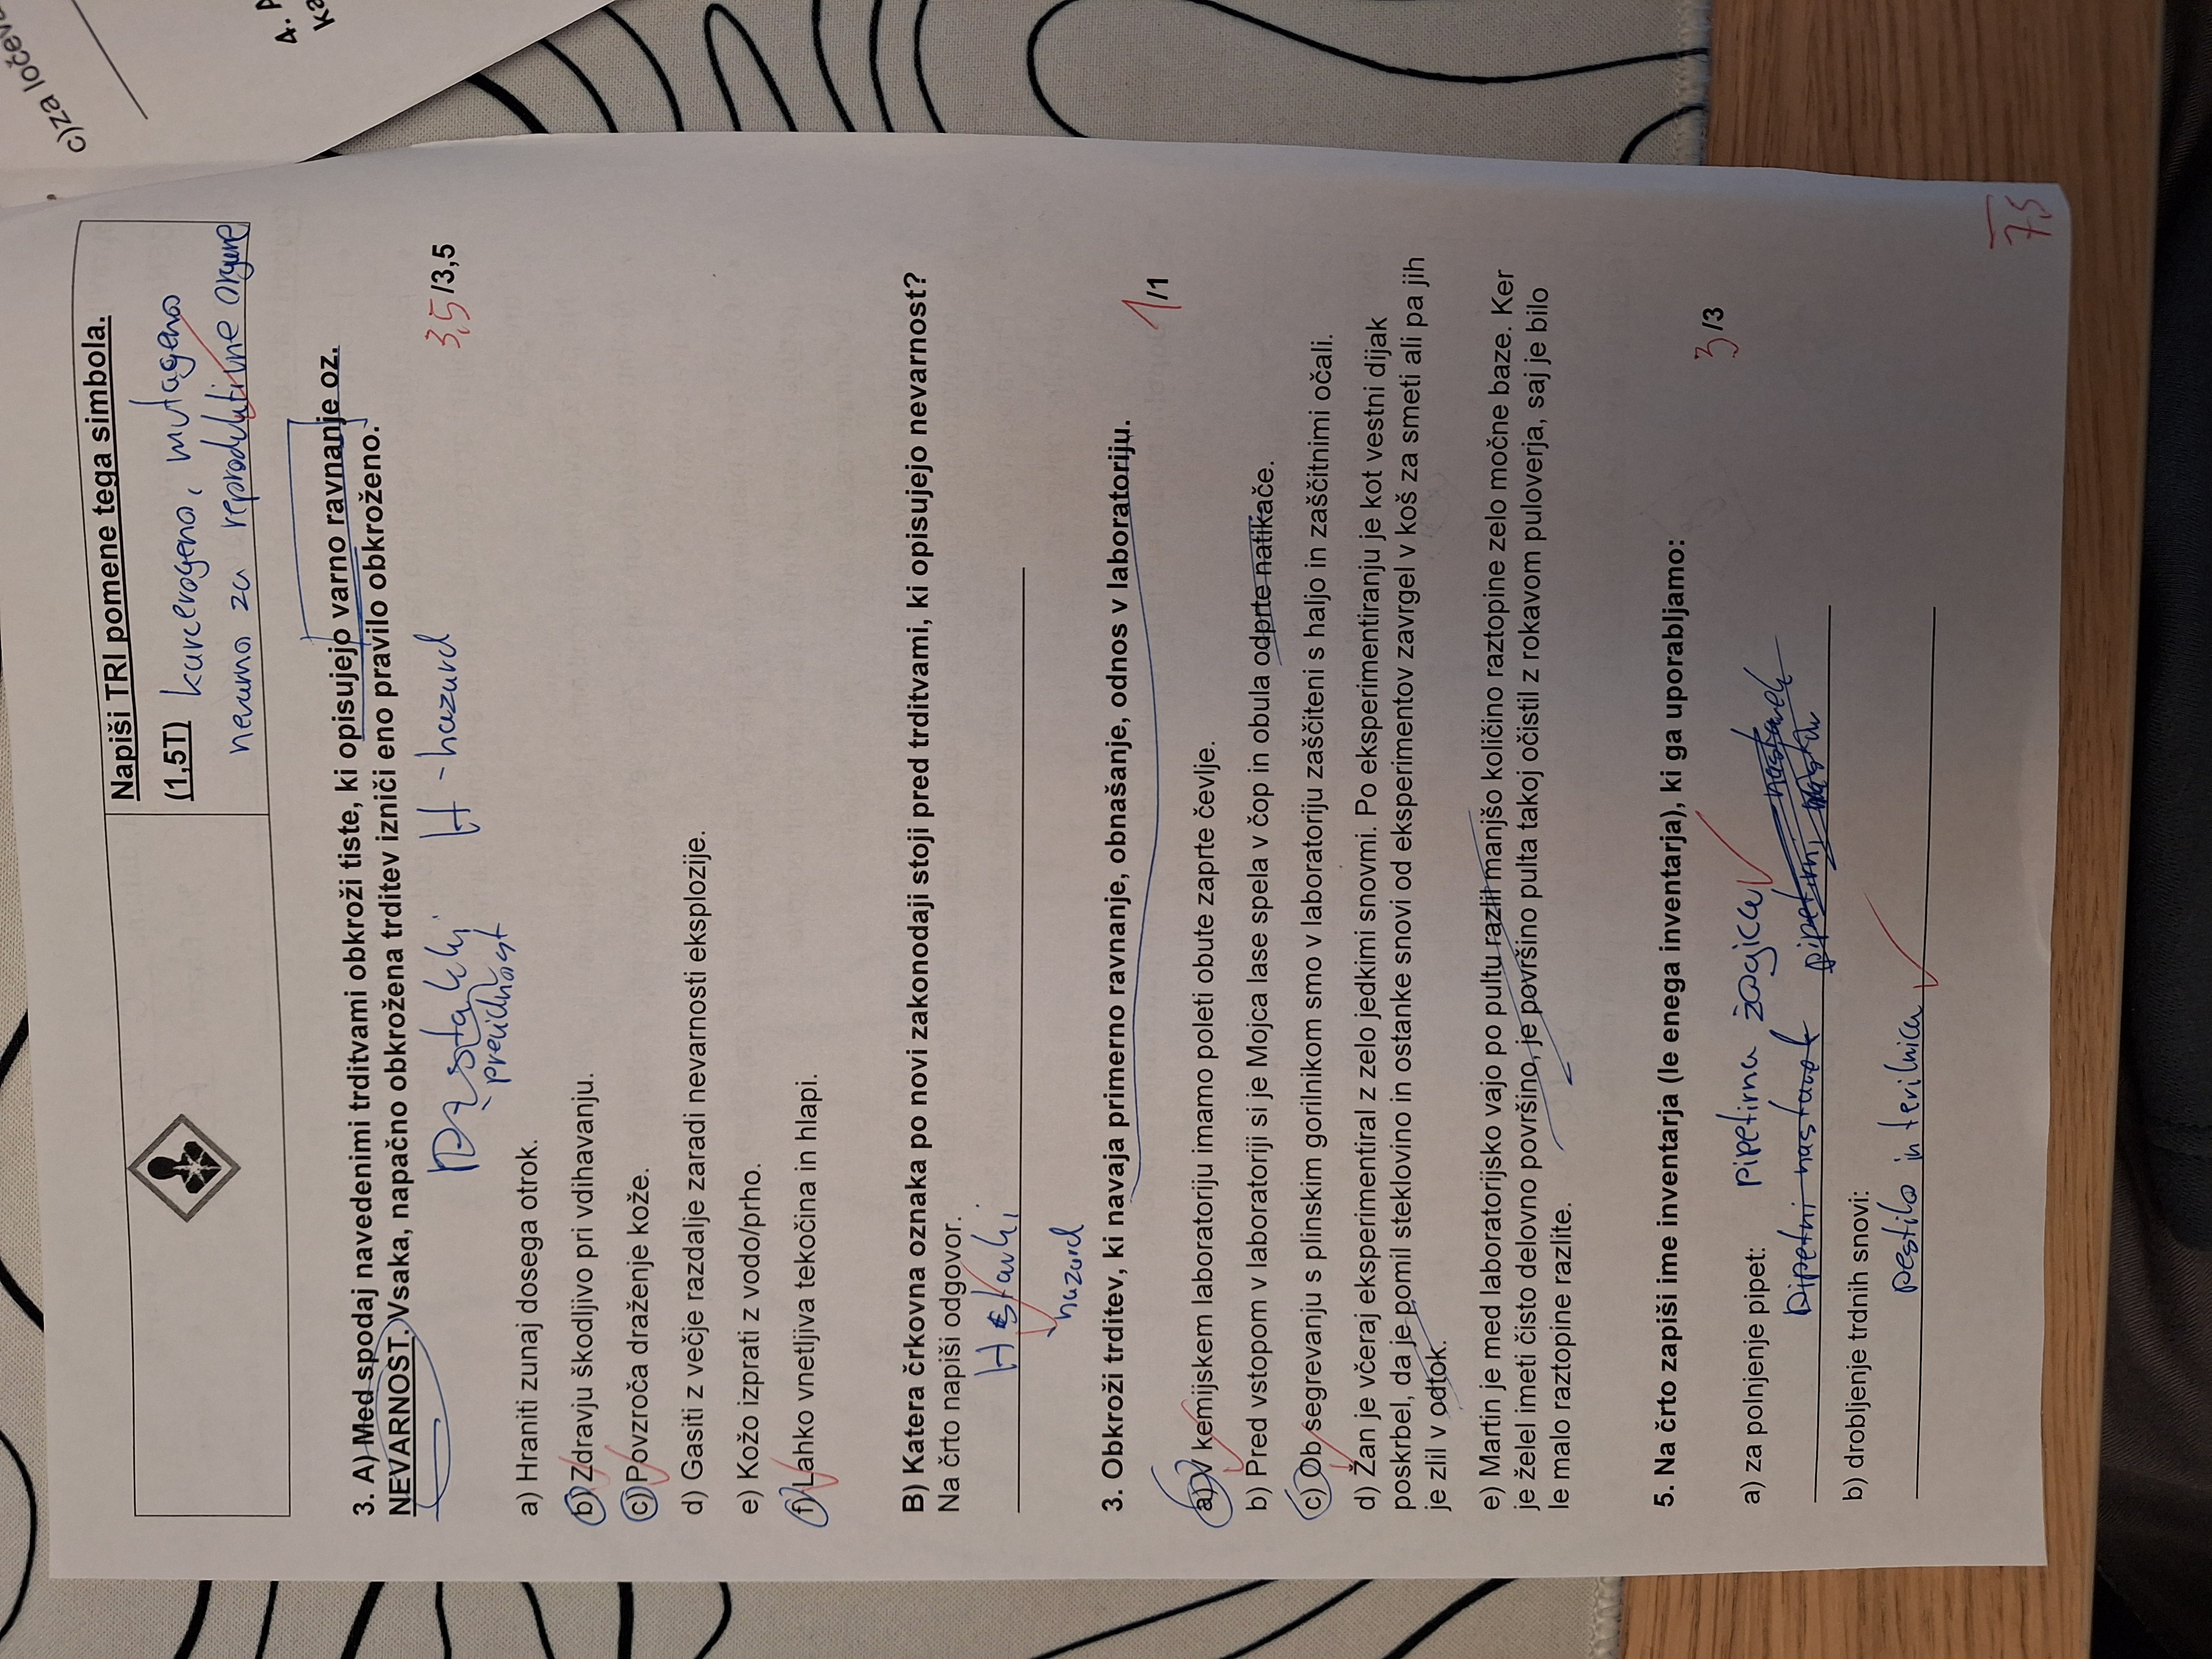 c)za ločev
4. A
ka
Napiši TRI pomene tega simbola.
(1,5T) karcerogeno, mutageno
nevarno za reproduktivne organe
3. A) Med spodaj navedenimi trditvami obkroži tiste, ki opisujejo varno ravnanje oz.
NEVARNOST. Vsaka, napačno obkrožena trditev izniči eno pravilo obkroženo.
stakki H - hazard
previdnost
3,5/3,5
a) Hraniti zunaj dosega otrok.
b) Zdravju škodljivo pri vdihavanju.
c) Povzroča draženje kože.
d) Gasiti z večje razdalje zaradi nevarnosti eksplozije.
e) Kožo izprati z vodo/prho.
f) Lahko vnetljiva tekočina in hlapi.
B) Katera črkovna oznaka po novi zakonodaji stoji pred trditvami, ki opisujejo nevarnost?
Na črto napiši odgovor.
H stavki
hazard
3. Obkroži trditev, ki navaja primerno ravnanje, obnašanje, odnos v laboratoriju.
1/1
a) V kemijskem laboratoriju imamo poleti obute zaprte čevlje.
b) Pred vstopom v laboratoriji si je Mojca lase spela v čop in obula odprte natikače.
c) Ob segrevanju s plinskim gorilnikom smo v laboratoriju zaščiteni s haljo in zaščitnimi očali.
d) Žan je včeraj eksperimentiral z zelo jedkimi snovmi. Po eksperimentiranju je kot vestni dijak
poskrbel, da je pomil steklovino in ostanke snovi od eksperimentov zavrgel v koš za smeti ali pa jih
je zlil v odtok.
e) Martin je med laboratorijsko vajo po pultu razlil manjšo količino raztopine zelo močne baze. Ker
je želel imeti čisto delovno površino, je površino pulta takoj očistil z rokavom puloverja, saj je bilo
le malo raztopine razlite.
5. Na črto zapiši ime inventarja (le enega inventarja), ki ga uporabljamo:
3/3
a) za polnjenje pipet: pipetirna žogica
pipetni nastavek pipetirni nastavek
b) drobljenje trdnih snovi:
pestilo in terilnica
7,5